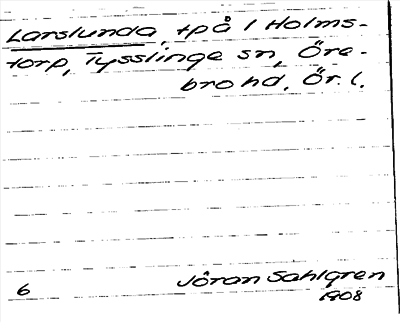 Larslunda, tpå i Holms-
torp, Tysslinge sn, Öre-
bro hd, Ör. l.
6
Jöran Sahlgren
1908